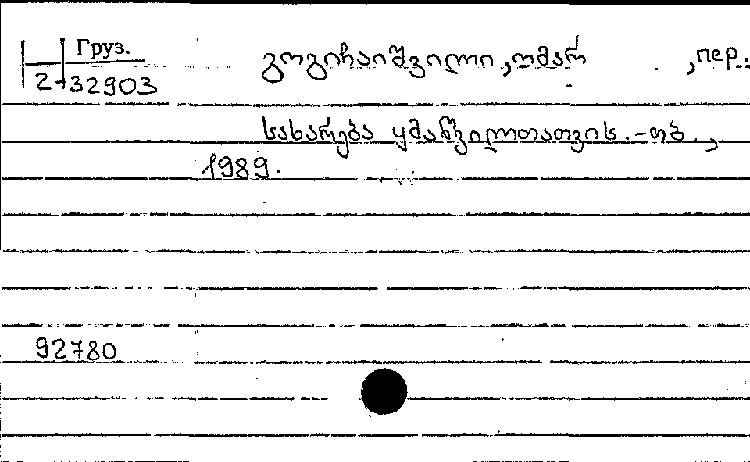 Груз.
2-32903
გოგიჩაიშვილი, ომარ , пер.
სახარება ყმაწვილთათვის. - თბ.,
1989.
92780